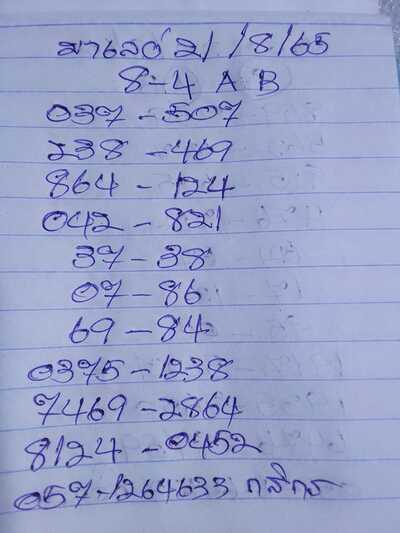 มาเลย์ 21/8/65
8-4 A B
037-507
238-469
864-124
042-821
37-38
07-86
69-84
0375-1238
7469-2864
8124-0452
057-1264633 กสิกร